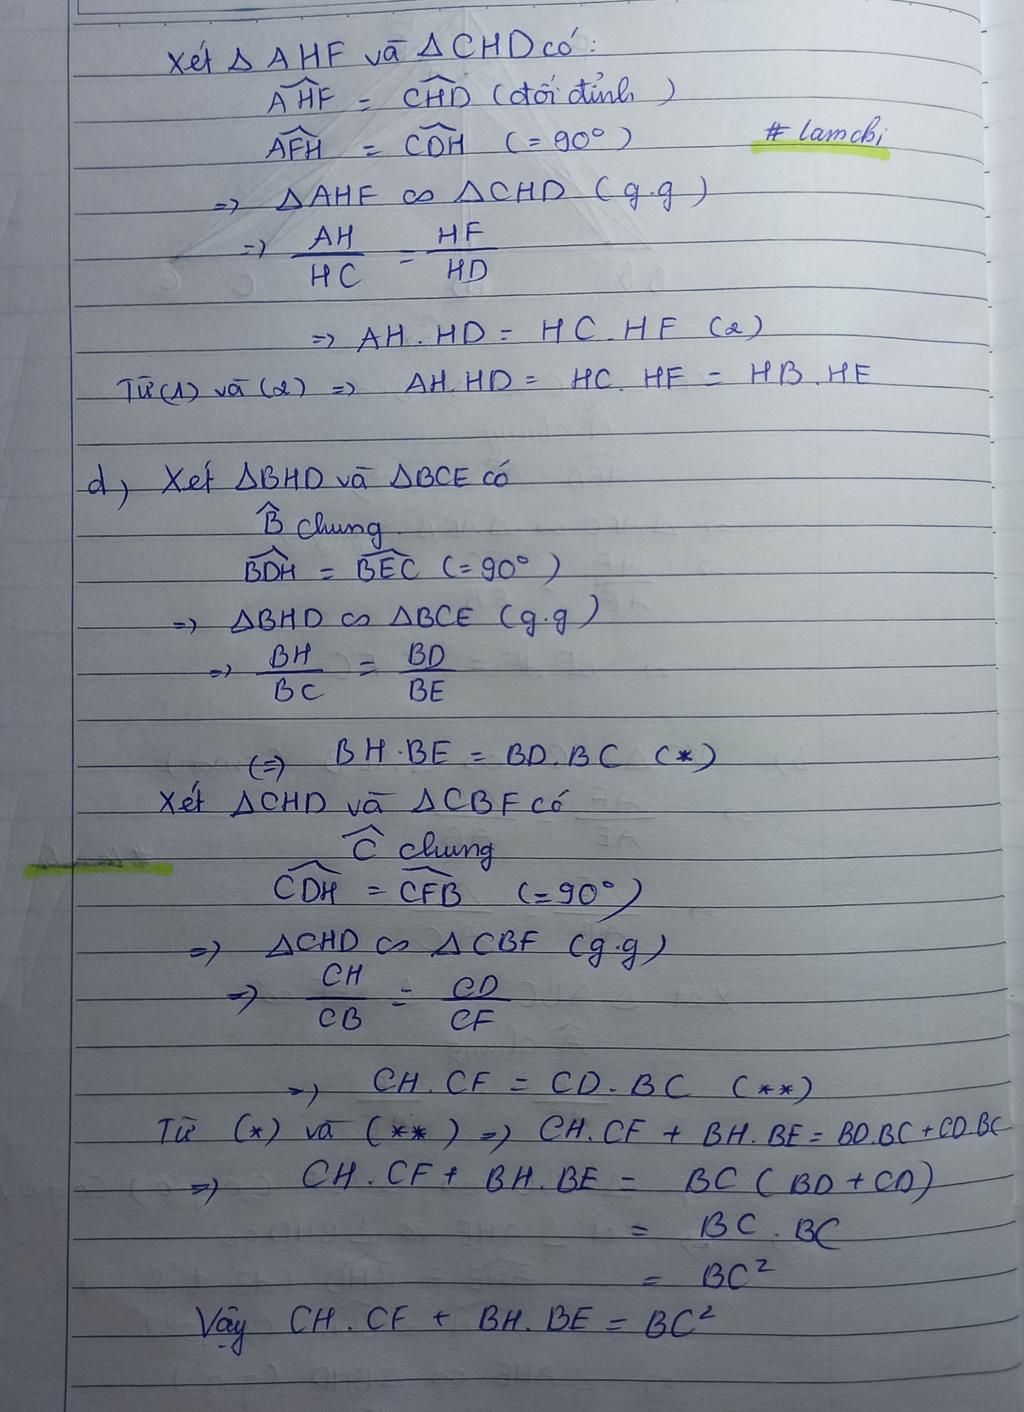 Xét ΔAHF và ΔCHD có:
\widehat{AHF} = \widehat{CHD} (đối đỉnh)
\widehat{AFH} = \widehat{CDH} (=90°)
# lamchi
=> ΔAHF ∽ ΔCHD (g.g)
=> AH/HC = HF/HD
=> AH.HD = HC.HF (2)
Từ (1) và (2) => AH.HD = HC.HF = HB.HE
d, Xét ΔBHD và ΔBCE có
\widehat{B} chung
\widehat{BDH} = \widehat{BEC} (=90°)
=> ΔBHD ∽ ΔBCE (g.g)
=> BH/BC = BD/BE
(=> BH.BE = BD.BC (*)
Xét ΔCHD và ΔCBF có
\widehat{C} chung
\widehat{CDH} = \widehat{CFB} (=90°)
=> ΔCHD ∽ ΔCBF (g.g)
=> CH/CB = CD/CF
=> CH.CF = CD.BC (**)
Từ (*) và (**) => CH.CF + BH.BE = BD.BC + CD.BC
=> CH.CF + BH.BE = BC (BD + CD)
= BC.BC
= BC²
Vậy CH.CF + BH.BE = BC²